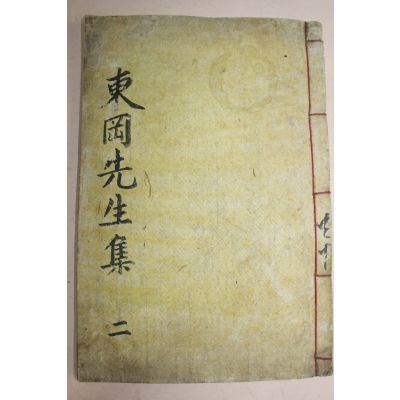 東岡先生集
二